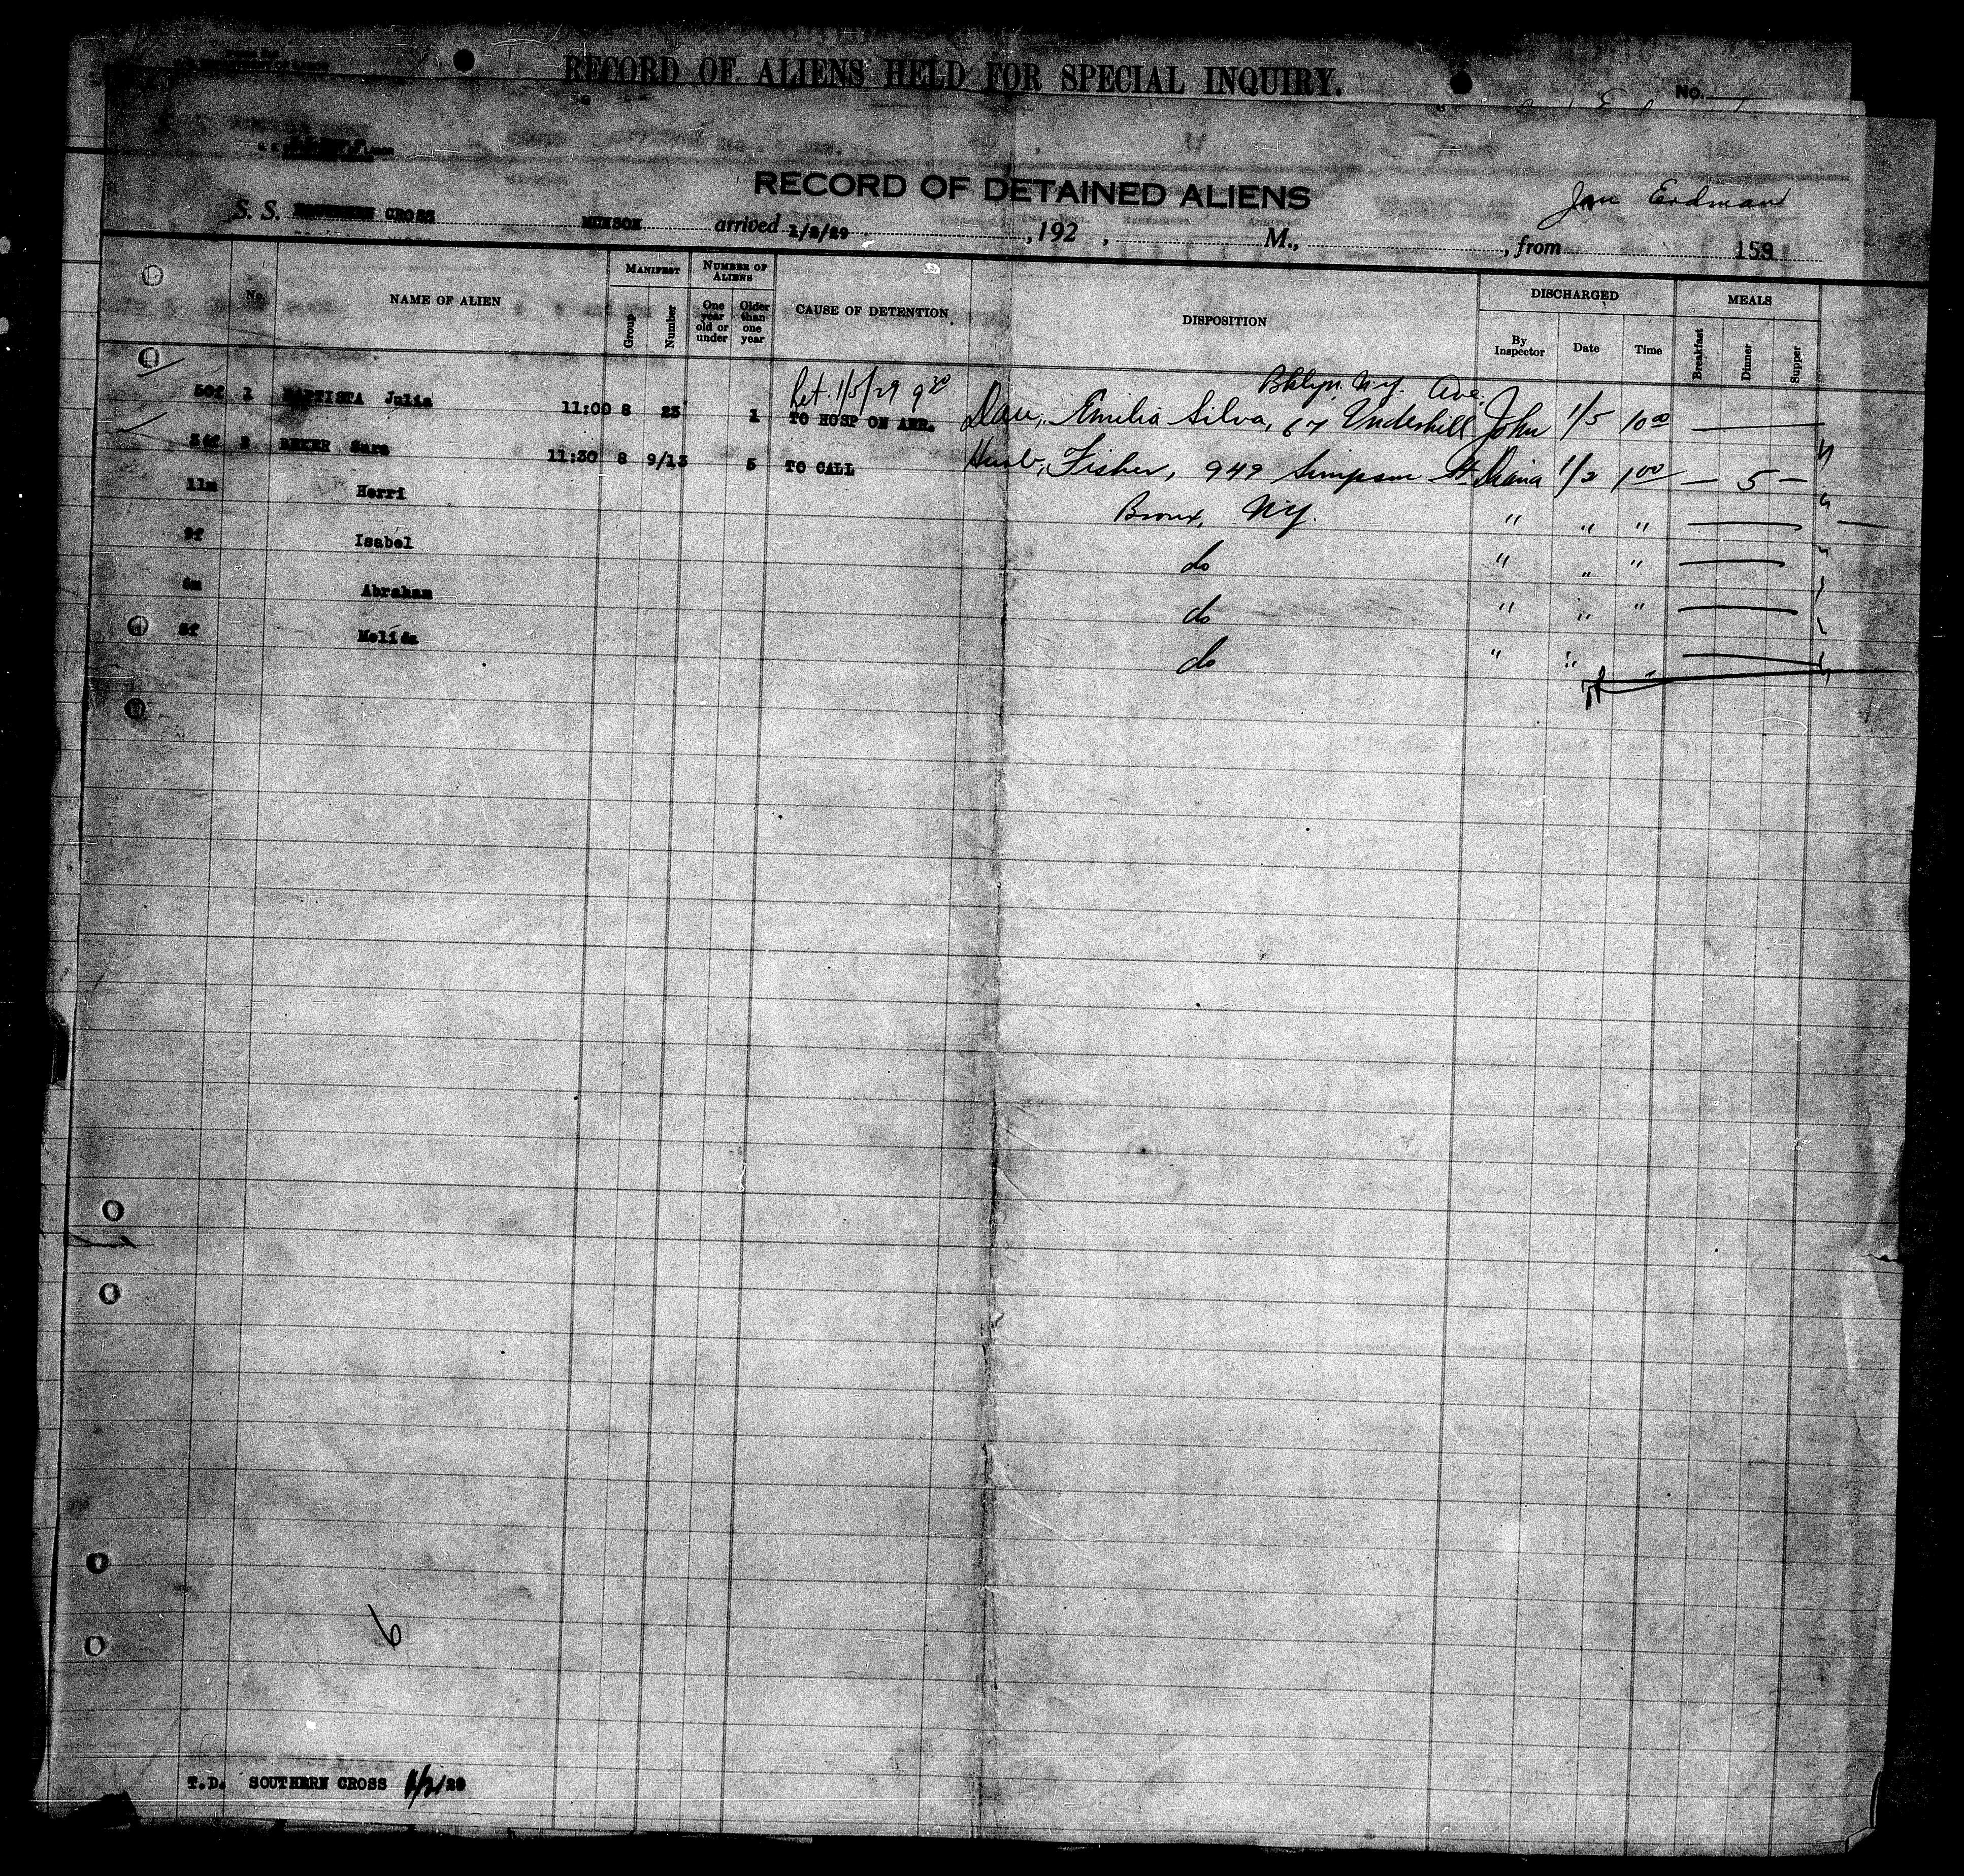 RECORD OF ALIENS HELD FOR SPECIAL INQUIRY.
No.
RECORD OF DETAINED ALIENS
Jan Erdman
S. S. SOUTHERN CROSS MUNSON arrived 1/2/29 , 192 , M., , from 159
No. NAME OF ALIEN MANIFEST Group Number NUMBER OF ALIENS One year old or under Older than one year CAUSE OF DETENTION DISPOSITION DISCHARGED By Inspector Date Time MEALS Breakfast Dinner Supper
Ret. 1/5/29 9 30 Bklyn. N.Y. Ave.
50f 1 BAPTISTA Julia 11:00 8 23 1 TO HOSP ON ARR. Dau., Emilia Silva, 67 Underhill John 1/5 10 00
2 Sara 11:30 8 9/13 5 TO CALL Husb, Fisher, 949 Simpson St. Diana 1/2 1 00 — 5 —
11m Herri Bronx, N.Y. " " "
9f Isabel do " " "
6m Abraham do " " "
5f Melida do " " "
6
T.D. SOUTHERN CROSS 1/2/29